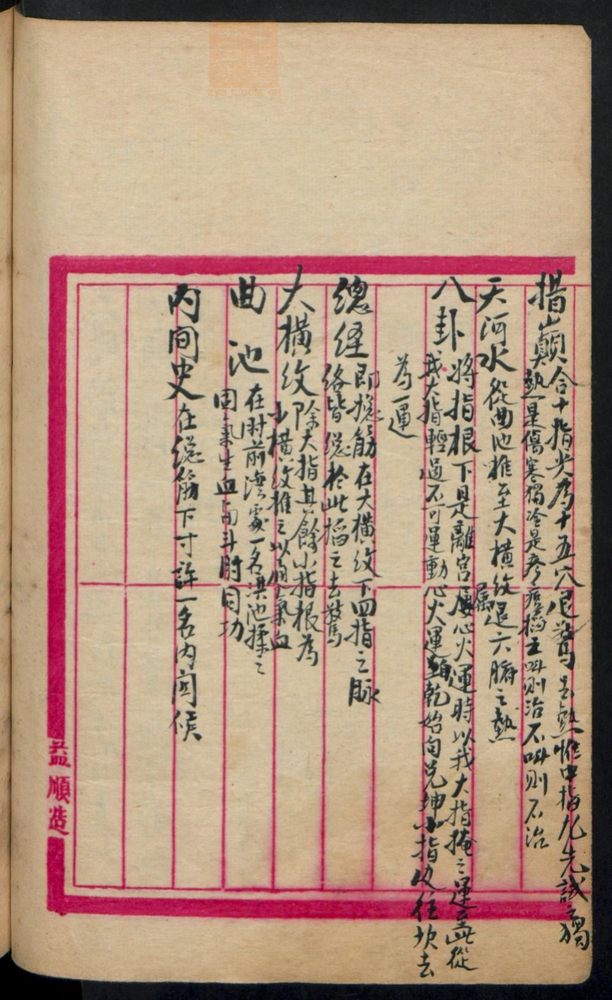 指巔 合十指尖為十五穴退驚去熱惟中指尤先試之獨
熱是傷寒獨冷是痧痘掐主叫則治不叫則不治
天河水 從曲池推至大橫紋退六腑之熱
八卦 將指根下是離宮屬心火運時以我大指掩之運至此從
我大指輕過不可運動心火運乾始向兌坤小指及往坎去
為一運
總經 即總筋在大橫紋下四指之脈
絡皆總於此掐之去驚
大橫紋 除大指其餘小指根為
小橫紋推之以和氣血
曲池 在肘前湾處一名洪池揉之
固氣生血與斗肘同功
內間史 在總筋下寸許一名內間候
益順造